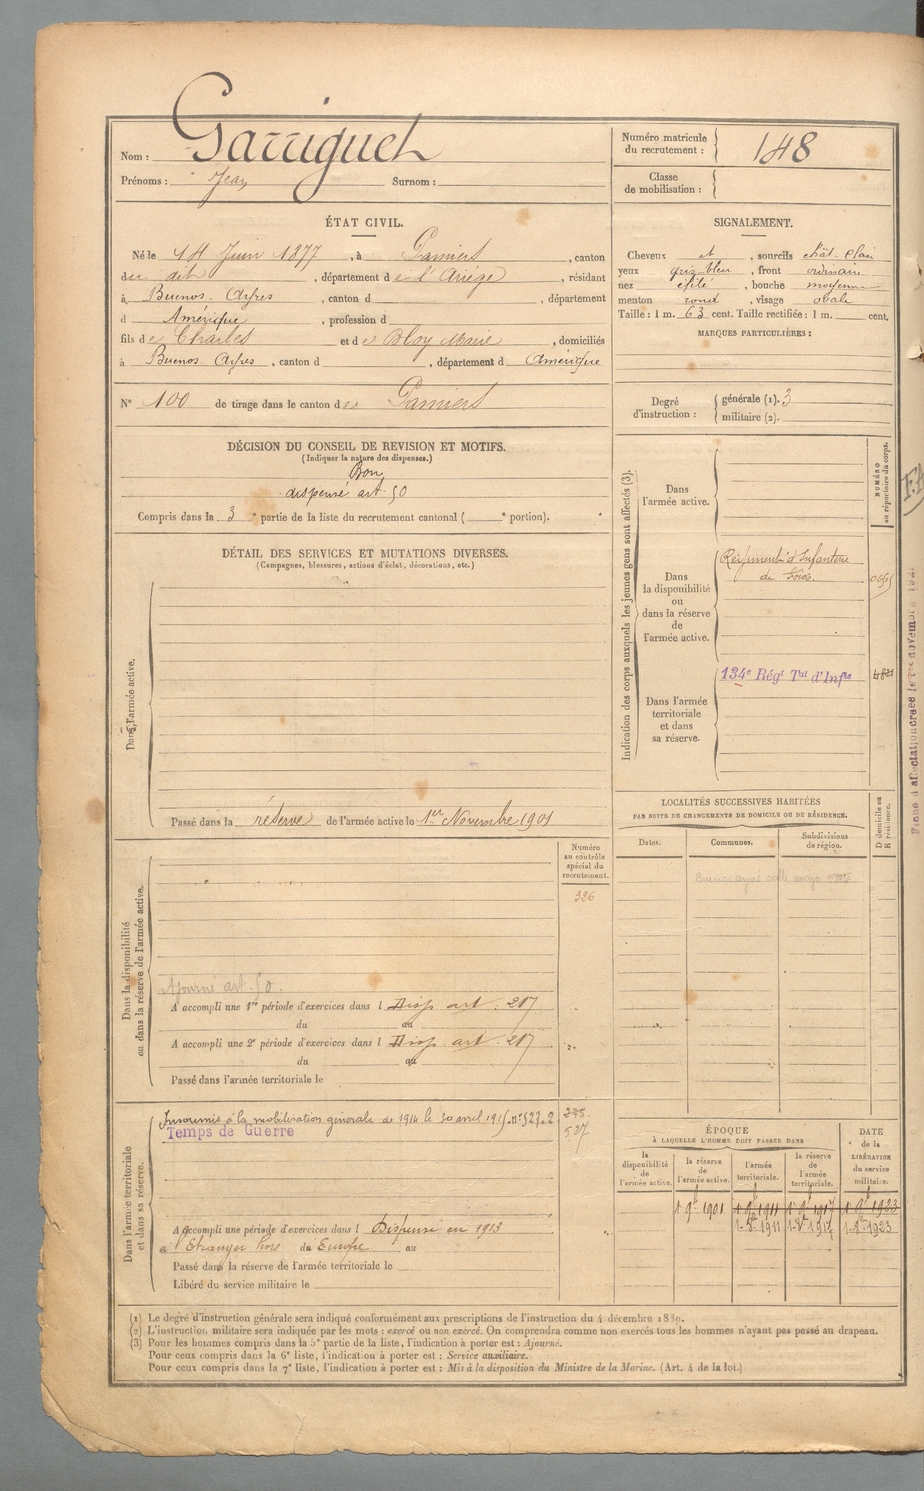 Nom : Garriguet
Prénoms : Jean Surnom :
Numéro matricule du recrutement : 148
Classe de mobilisation :
ÉTAT CIVIL.
Né le 14 Juin 1877, à Pamiers, canton
du dit, département de l'Ariège, résidant
à Buenos-Ayres, canton d , département
d Amérique, profession d
fils de Charles et de Bloy Marie, domiciliés
à Buenos-Ayres, canton d , département d Amérique
N° 100 de tirage dans le canton de Pamiers
SIGNALEMENT.
Cheveux et, sourcils chât-clair
yeux gris-bleu, front ordinaire
nez effilé, bouche moyenne
menton rond, visage ovale
Taille : 1 m. 63 cent. Taille rectifiée : 1 m. cent.
MARQUES PARTICULIÈRES :
Degré d'instruction : générale (1). 3
militaire (2).
DÉCISION DU CONSEIL DE REVISION ET MOTIFS.
(Indiquer la nature des dispenses.)
Bon
dispensé art. 50
Compris dans la 3e partie de la liste du recrutement cantonal ( e portion).
DÉTAIL DES SERVICES ET MUTATIONS DIVERSES.
(Campagnes, blessures, actions d'éclat, décorations, etc.)
Dans l'armée active.
Passé dans la réserve de l'armée active le 1er Novembre 1901
Indication des corps auxquels les jeunes gens sont affectés (3).
NUMÉRO au répertoire du corps.
Dans l'armée active.
Dans la disponibilité ou dans la réserve de l'armée active.
Régiment d'Infanterie
de Foix.
Dans l'armée territoriale et dans sa réserve.
134e Régt Tal d'Infie
LOCALITÉS SUCCESSIVES HABITÉES
PAR SUITE DE CHANGEMENTS DE DOMICILE OU DE RÉSIDENCE.
Dates. Communes. Subdivisions de région.
D domicile ou R résidence.
Dans la disponibilité ou dans la réserve de l'armée active.
Numéro au contrôle spécial du recrutement.
326
Ajourné art. 50.
A accompli une 1re période d'exercices dans l Disp art. 217
du au
A accompli une 2e période d'exercices dans l Disp art. 217
du au
Passé dans l'armée territoriale le
Dans l'armée territoriale et dans sa réserve.
Insoumis à la mobilisation générale de 1914 le 30 avril 1915. n° 527.2
Temps de Guerre
527
A accompli une période d'exercices dans l Dispensé en 1913
à l'Etranger hors du Europe au
Passé dans la réserve de l'armée territoriale le
Libéré du service militaire le
ÉPOQUE
À LAQUELLE L'HOMME DOIT PASSER DANS
la disponibilité de l'armée active.
la réserve de l'armée active.
l'armée territoriale.
la réserve de l'armée territoriale.
DATE de la LIBÉRATION du service militaire.
1. 9bre 1901 1. 9bre 1911 1. 9bre 1917 1. 9bre 1923
(1) Le degré d'instruction générale sera indiqué conformément aux prescriptions de l'instruction du 4 décembre 1889.
(2) L'instruction militaire sera indiquée par les mots : exercé ou non exercé. On comprendra comme non exercés tous les hommes n'ayant pas passé au drapeau.
(3) Pour les hommes compris dans la 5e partie de la liste, l'indication à porter est : Ajourné.
Pour ceux compris dans la 6e liste, l'indication à porter est : Service auxiliaire.
Pour ceux compris dans la 7e liste, l'indication à porter est : Mis à la disposition du Ministre de la Marine. (Art. 4 de la loi.)